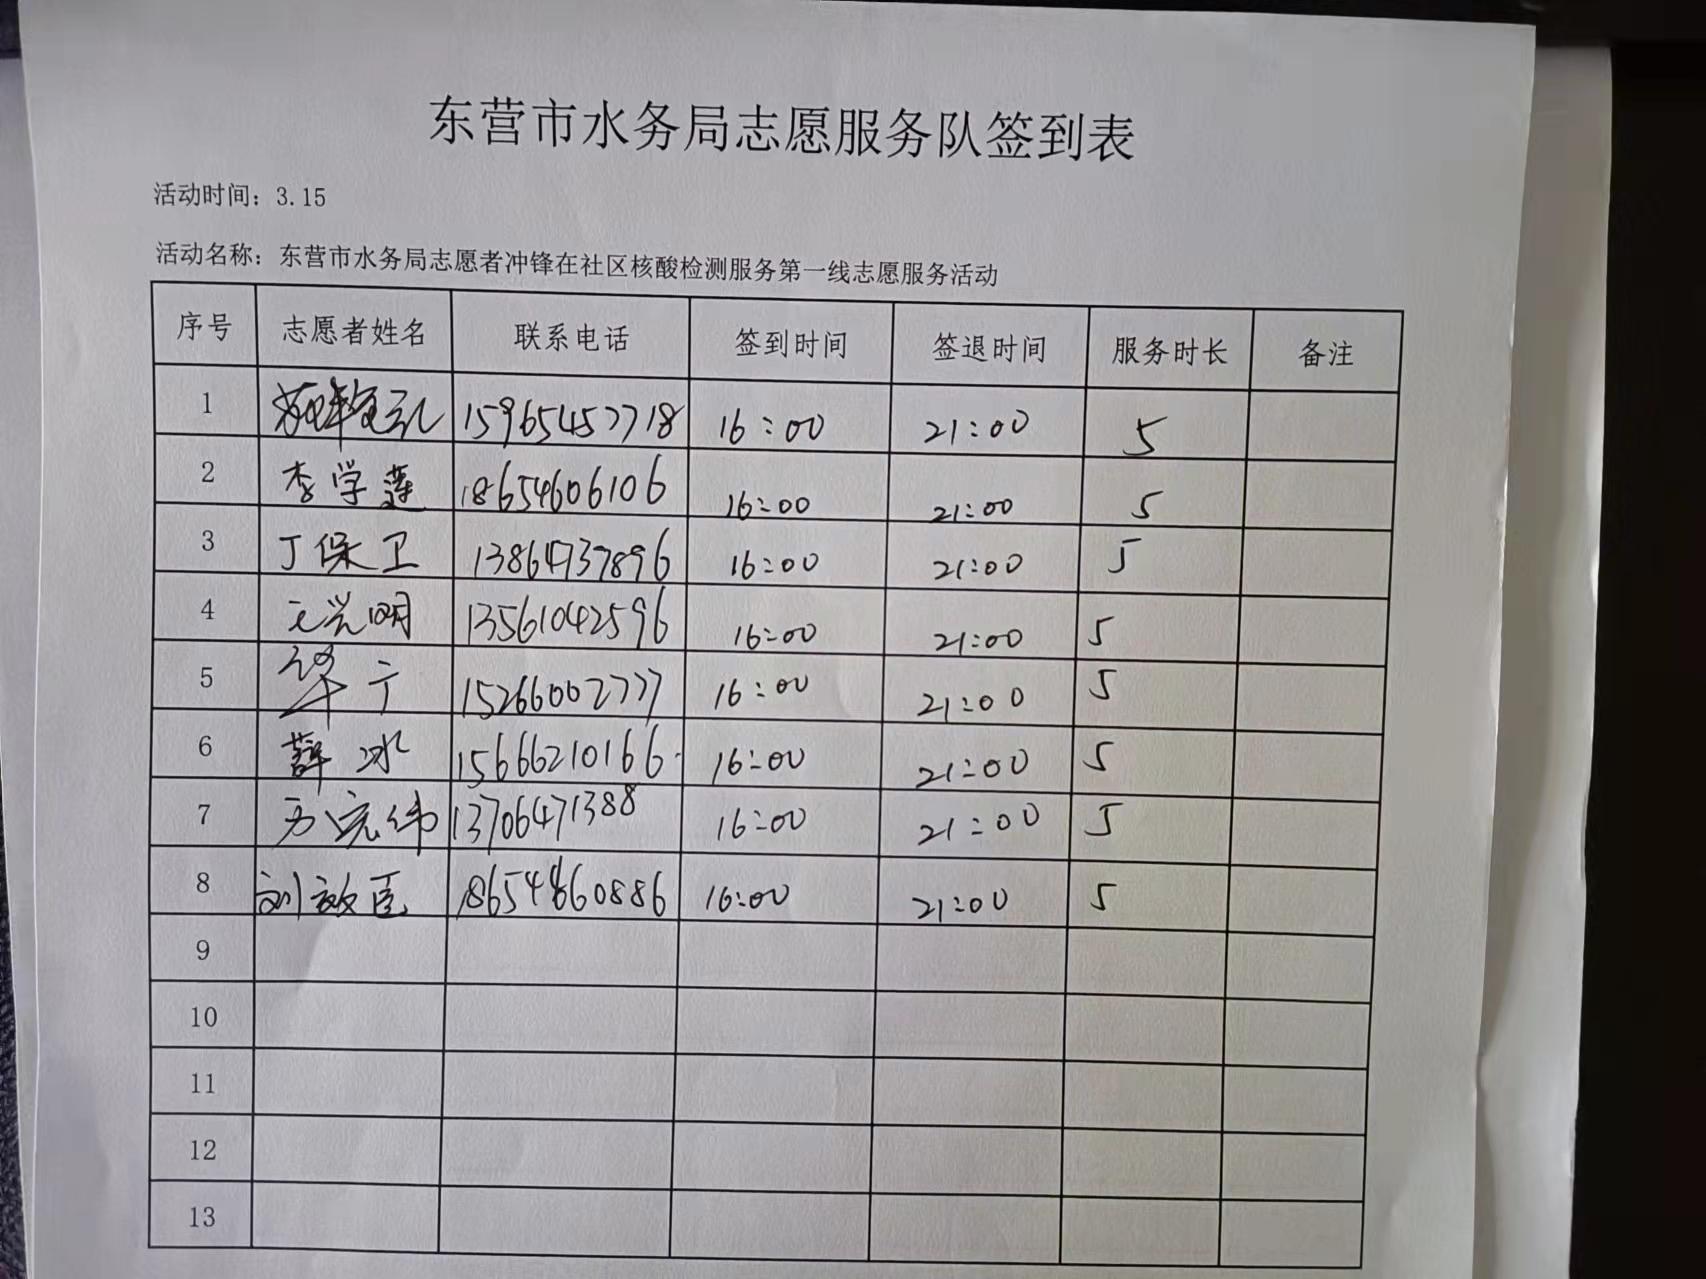 东营市水务局志愿服务队签到表
活动时间：3.15
活动名称：东营市水务局志愿者冲锋在社区核酸检测服务第一线志愿服务活动
序号 志愿者姓名 联系电话 签到时间 签退时间 服务时长 备注
1 15965457718 16:00 21:00 5
2 李学莲 18654606106 16:00 21:00 5
3 丁保卫 13864737896 16:00 21:00 5
4 王兴明 13561042596 16:00 21:00 5
5 15266002777 16:00 21:00 5
6 薛冰 15666210166 16:00 21:00 5
7 13706471388 16:00 21:00 5
8 刘效臣 18654860886 16:00 21:00 5
9
10
11
12
13